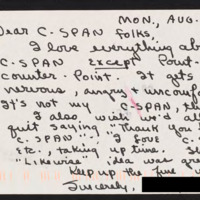 MON., AUG.
Dear C-SPAN folks,
I love everything ab
C-SPAN except Point-
Counter-Point. It gets
nervous, angry + uncomfo
It's not my C-SPAN, th
I also wish we'd all
quit saying "Thank you f
C-SPAN" "I love C-
etc., taking up time. S
"Likewise" idea was gr
Keep up the fine w
Sincerely,